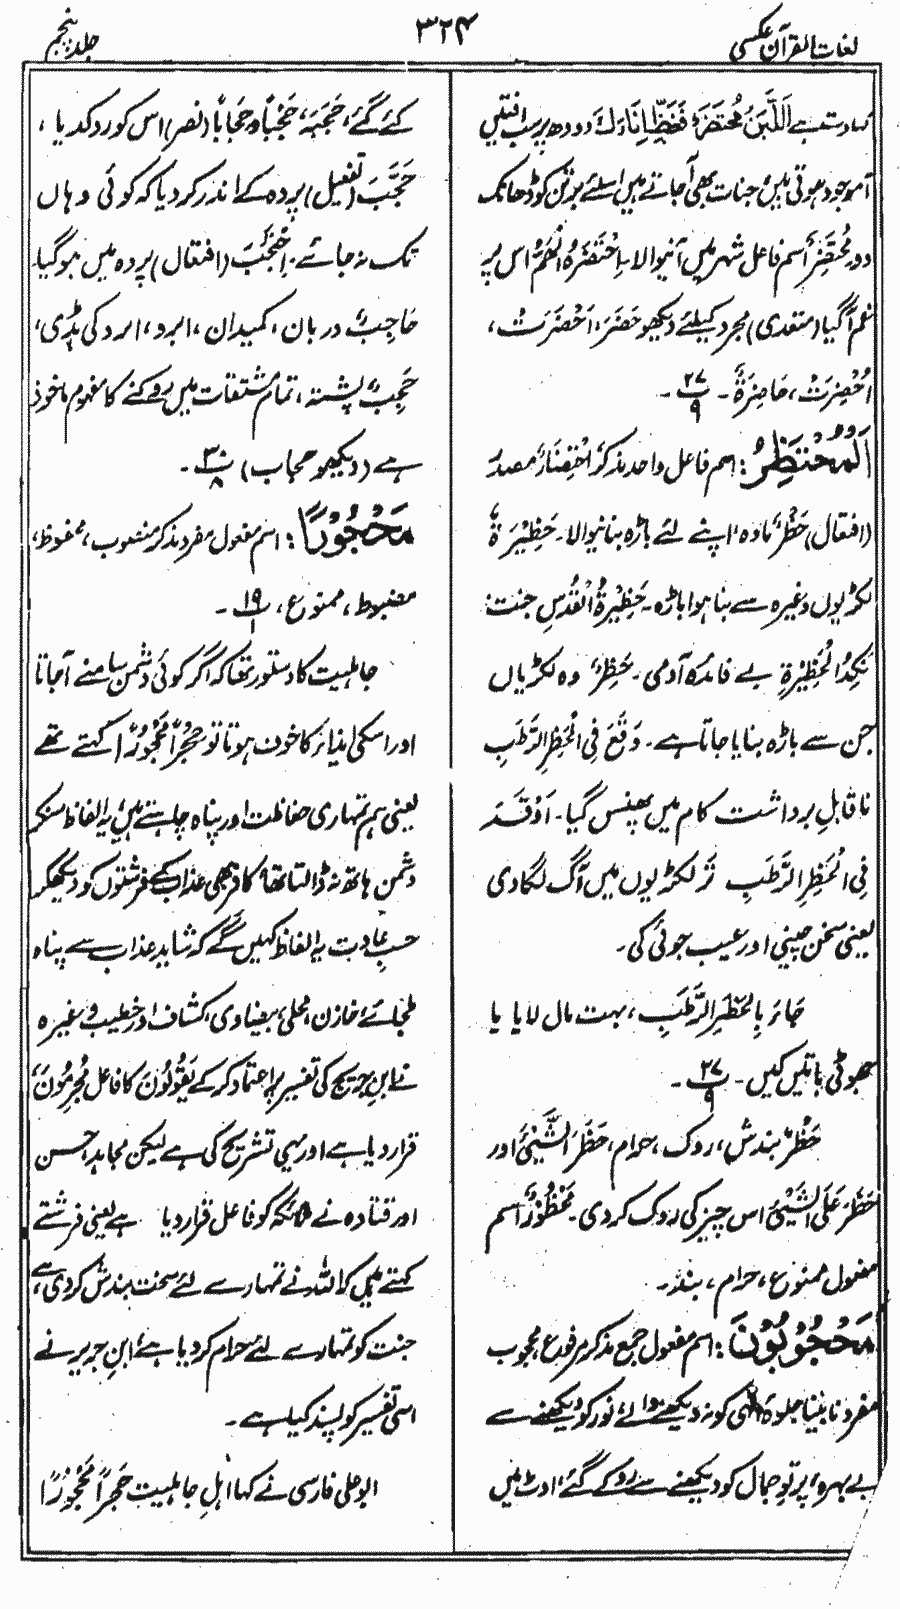 لغات القرآن عکسی
۳۲۴
جلد پنجم
کہاوت ہے اَللَّبَنُ مُحْتَضَرٌ فَغَطِّ اِنَاءَكَ دودھ پر سب آفتیں
آموجود ہوتی ہیں، جنات بھی آجاتے ہیں اسلئے برتن کو ڈھانک
دو۔ مُحْتَضِرٌ اسم فاعل شہر میں آنیوالا۔ اِحْتَضَرَهُ الْهَمُّ اس پر
غم آگیا (متعدی) مجرد کیلئے دیکھو حَضَرَ، اَحْضَرَتْ،
اُحْضِرَتْ، حَاضِرَةً ۔ ۲۷ / ۹ ۔
اَلْمُحْتَظِرُ: اسم فاعل واحد مذکر اِحْتِظَارٌ مصدر
(افتعال) حَظْرٌ مادہ، اپنے لئے باڑہ بنانیوالا۔ حَظِیْرَةٌ
لکڑیوں وغیرہ سے بنا ہوا باڑہ۔ حَظِیْرَةُ الْقُدُسِ جنت۔
نَکِدُ الْحَظِیْرَةِ بے فائدہ آدمی۔ حَظِرٌ وہ لکڑیاں
جن سے باڑہ بنایا جاتا ہے۔ وَقَعَ فِی الْحَظِرِ الرَّطْبِ
ناقابلِ برداشت کام میں پھنس گیا۔ اَوْقَدَ
فِی الْحَظِرِ الرَّطْبِ تر لکڑیوں میں آگ لگادی
یعنی سخن چینی اور عیب جوئی کی۔
جَاءَ بِالْحَظِرِ الرَّطْبِ، بہت مال لایا یا
جھوٹی باتیں کیں۔ ۲۷ / ۹ ۔
حَظْرٌ بندش، روک، حرام، حَظَرَ الشَّیْئَ اور
حَظَرَ عَلَی الشَّیْئِ اس چیز کی روک کردی۔ مَحْظُوْرٌ اسم
مفعول ممنوع، حرام، بند۔
مَحْجُوْبُوْنَ: اسم مفعول جمع مذکر مرفوع، محجوب
مفرد نابینا جلوۂ الٰہی کو نہ دیکھنے والے، نور کو دیکھنے سے
بے بہرہ، پرتوِ جمال کو دیکھنے سے روکے گئے، اوٹ میں
کئے گئے، حَجَبَہٗ، حَجْبًا وحِجَابًا (نصر) اس کو روکدیا،
حَجَّبَ (تفعیل) پردہ کے اندر کردیا کہ کوئی وہاں
تک نہ جائے۔ اِحْتَجَبَ (افتعال) پردہ میں ہوگیا۔
حَاجِبٌ دربان، کمیدان، ابرو، ابرو کی ہڈی،
حَجِبٌ پشتہ، تمام مشتقات میں روکنے کا مفہوم ماخوذ
ہے (دیکھو حجاب) ۳۰ / ۸ ۔
مَحْجُوْرًا: اسم مفعول مفرد مذکر منصوب، محفوظ،
مضبوط، ممنوع، ۱۹ / ۱ ۔
جاہلیت کا دستور تھا کہ اگر کوئی دشمن سامنے آجاتا
اور اسکی ایذا کا خوف ہوتا تو حِجْرًا مَّحْجُوْرًا کہتے تھے
یعنی ہم تمہاری حفاظت اور پناہ چاہتے ہیں، یہ الفاظ سنکر
دشمن ہاتھ نہ ڈالتا تھا، کافر بھی عذاب کے فرشتوں کو دیکھکر
حسبِ عادت یہ الفاظ کہیں گے کہ شاید عذاب سے پناہ
ملجائے خازن، محلی، بیضاوی، کشاف اور خطیب وغیرہ
نے ابن جریج کی تفسیر پر اعتماد کر کے یَقُوْلُوْنَ کا فاعل مُجْرِمُوْنَ
قرار دیا ہے اور یہی تشریح کی ہے لیکن مجاہد، حسن
اور قتادہ نے ملائکہ کو فاعل قرار دیا ہے یعنی فرشتے
کہتے ہیں کہ اللہ نے تمہارے لئے سخت بندش کردی ہے،
جنت کو تمہارے لئے حرام کردیا ہے، ابن جریر نے
اسی تفسیر کو پسند کیا ہے۔
ابو علی فارسی نے کہا اہلِ جاہلیت حِجْرًا مَّحْجُوْرًا